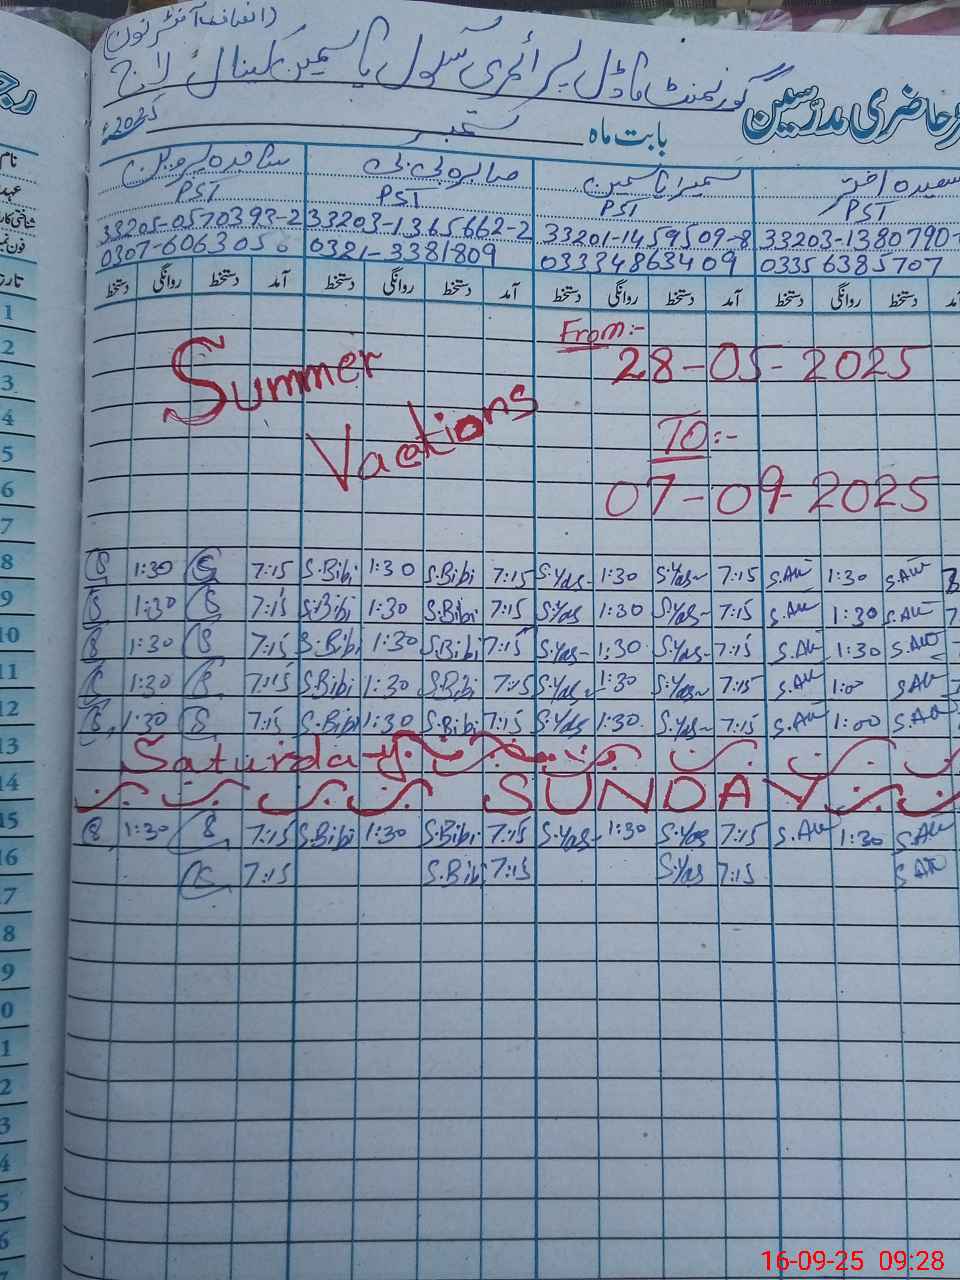 (انصاف آفٹر نون)
گورنمنٹ ماڈل پرائمری سکول یاسمین کینال لاج
حاضری مدرسین
بابت ماہ ستمبر 2025ء
سعیدہ اختر سمیرا یاسمین صابرہ بی بی ساجدہ پروین
PST PST PST PST
33205-0570393-2 33203-1365662-2 33201-1459509-8 33203-1380790-
0307-606305 0321-3381809 03334863409 03356385707
نام
عہد
شناختی کار
فون نمبر
تاریخ
آمد دستخط روانگی دستخط آمد دستخط روانگی دستخط آمد دستخط روانگی دستخط آمد دستخط روانگی دستخط
1
2 From:-
Summer 28-05-2025
3
4 Vacations
5 TO:-
6 07-09-2025
7
8 S 1:30 S 7:15 S.Bibi 1:30 S.Bibi 7:15 S.Yas- 1:30 S.Yas- 7:15 S.AW 1:30 S.AW
9 S 1:30 S 7:15 S.Bibi 1:30 S.Bibi 7:15 S.Yas 1:30 S.Yas- 7:15 S.AW 1:30 S.AW 7
10 S 1:30 S 7:15 S.Bibi 1:30 S.Bibi 7:15 S.Yas- 1:30 S.Yas- 7:15 S.AW 1:30 S.AW 7
11 S 1:30 S 7:15 S.Bibi 1:30 S.Bibi 7:15 S.Yas- 1:30 S.Yas- 7:15 S.AW 1:00 S.AW
12 S 1:30 S 7:15 S.Bibi 1:30 S.Bibi 7:15 S.Yas 1:30 S.Yas- 7:15 S.AW 1:00 S.AW
13 Saturday
14 SUNDAY
15 S 1:30 S 7:15 S.Bibi 1:30 S.Bibi 7:15 S.Yas- 1:30 S.Yas 7:15 S.AW 1:30 S.AW
16 S 7:15 S.Bibi 7:15 S.Yas 7:15 S.AW
17
8
9
0
1
2
3
4
5
6
16-09-25 09:28